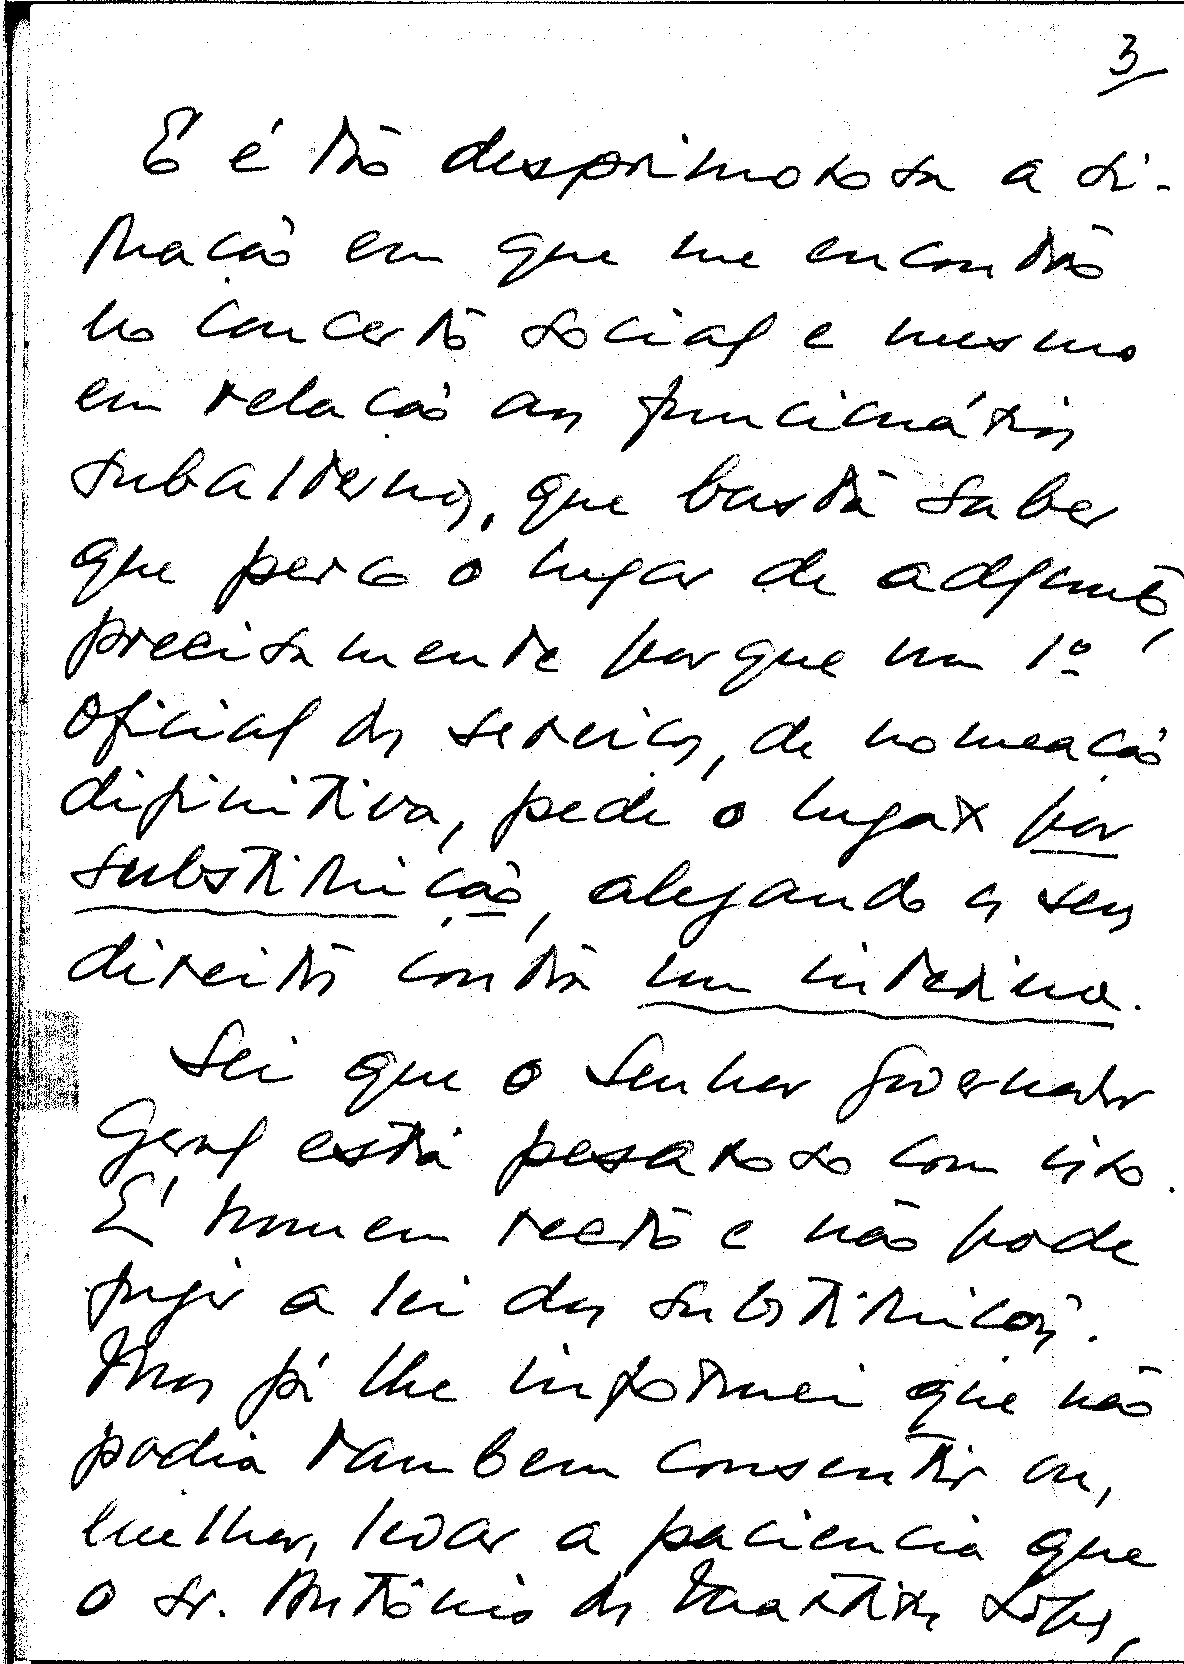 3
E é tão desprimorosa a si-
tuação em que me encontro
no concerto social e mesmo
em relação aos funcionários
subalternos, que basta saber
que perco o lugar de adjunto,
precisamente porque um 1º
oficial dos serviços, de nomeação
difinitiva, pede o lugar por
substituição, alegando os seus
direitos contra um interino.
Sei que o Senhor Governador
Geral está pesaroso com isso.
É homem recto e não pode
fugir a lei das substituições.
Mas já lhe informei que não
podia tambem consentir ou,
melhor, levar a paciencia que
o sr. António dos Mártires Lopes,